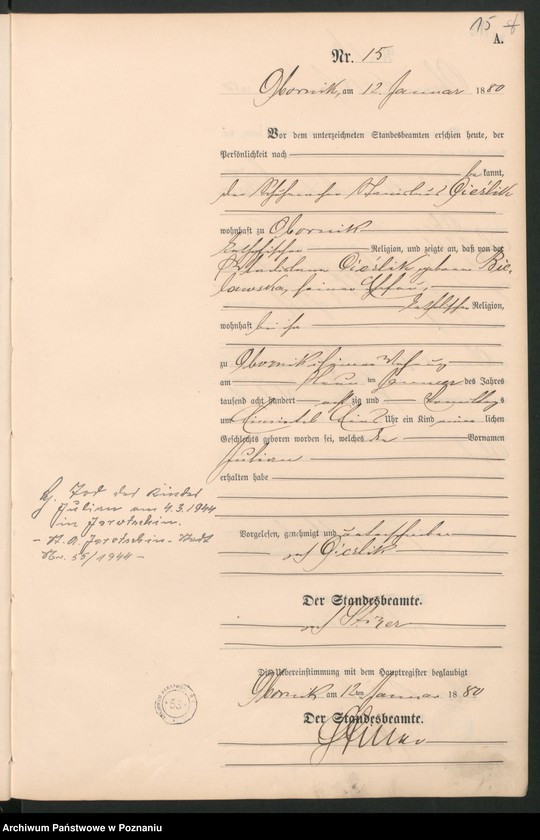 15
A.
Nr. 15
Obornik, am 12. Januar 1880
Vor dem unterzeichneten Standesbeamten erschien heute, der
Persönlichkeit nach
bekannt,
der Schuhmacher Stanislaus Cieślik
wohnhaft zu Obornik
katholischer Religion, und zeigte an, daß von der
Wladislawa Cieślik, geborne Bie-
lawska, seiner Ehefrau,
katholischer Religion,
wohnhaft bei ihm
zu Obornik in seiner Wohnung
am neunten Januar des Jahres
tausend acht hundert achtzig und Vormittags
um Uhr ein Kind männlichen
Geschlechts geboren worden sei, welches den Vornamen
Julian
erhalten habe
Vorgelesen, genehmigt und unterschrieben
Cieslik
Der Standesbeamte.
Die Uebereinstimmung mit dem Hauptregister beglaubigt
Obornik am 12ten Januar 1880
Der Standesbeamte.
Tod des Kindes
Julian am 4.3.1944
in Jarotschin.
- St. A. Jarotschin-Stadt
Nr. 55/1944 -
53
Archiwum Państwowe w Poznaniu